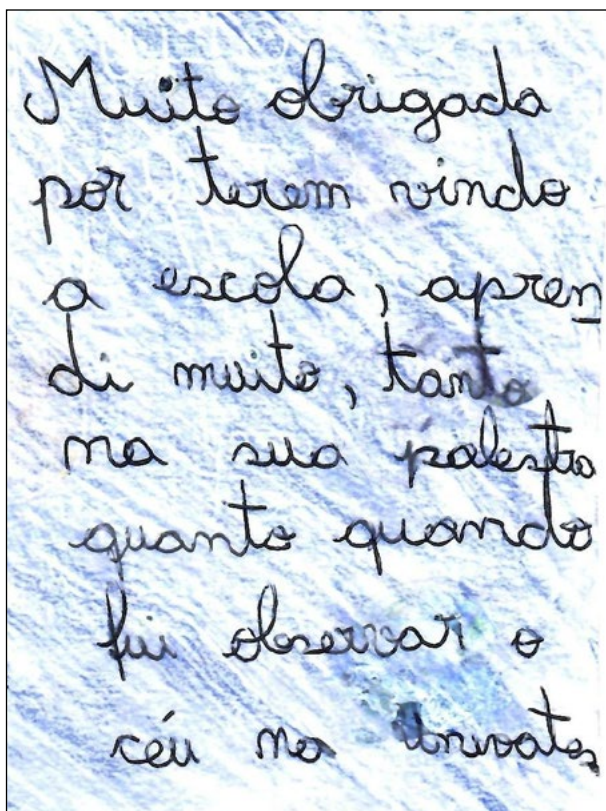 Muito obrigada
por terem vindo
a escola, apren
di muito, tanto
na sua palestra
quanto quando
fui observar o
céu na Univates